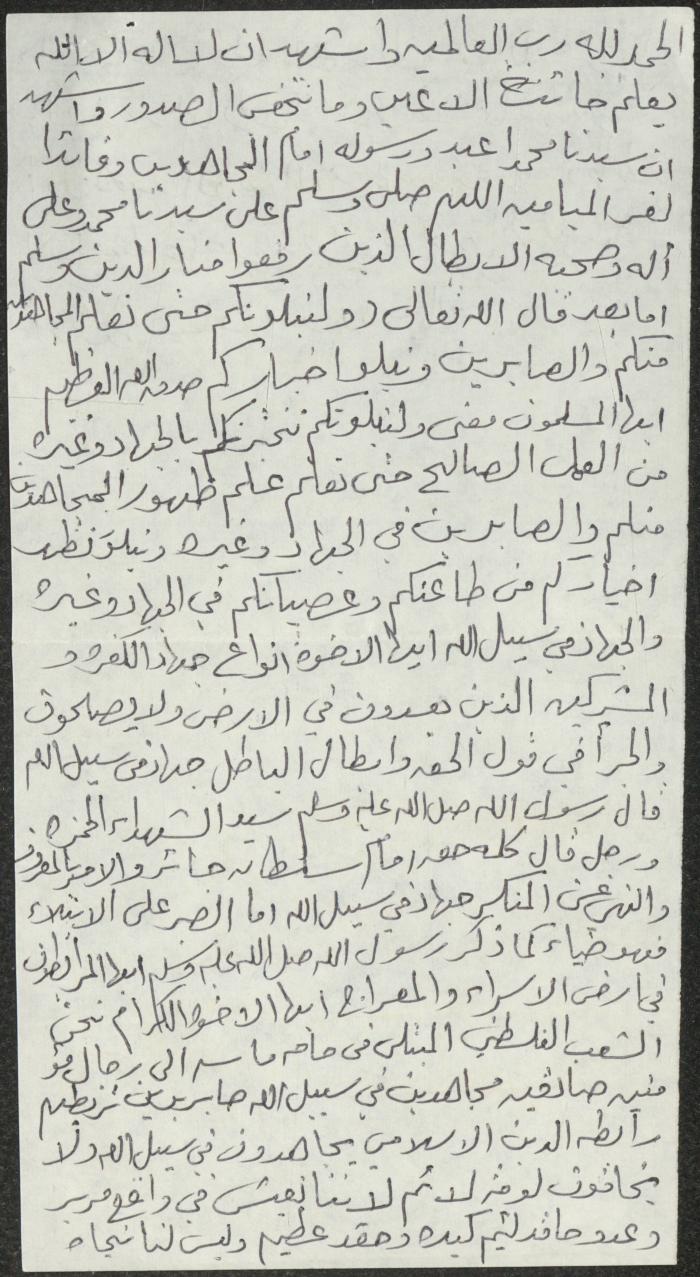 الحمد لله رب العالمين واشهد ان لا اله الا الله
يعلم خائنة الاعين وما تخفى الصدور واشهد
ان سيدنا محمدا عبد ورسوله امام المجاهدين وقائدا
لغر الميامين اللهم صلى وسلم على سيدنا محمد وعلى
آله وصحبه الابطال الذين رفعوا منار الدين وسلم
اما بعد قال الله تعالى (ولنبلونكم حتى نعلم المجاهدين
منكم والصابرين ونبلوا خباركم صدق الله العظيم
ايها المسلمون معنى ولنبلونكم نختبرنكم بالجهاد وغيره
من العمل الصالح حتى نعلم علم ظهور المجاهدين
منكم والصابرين في الجهاد وغيره ونبلو نظهر
اخباركم من طاعتكم وعصيانكم في الجهاد وغيره
والجهاد في سبيل الله ايها الاخوة انواع جهاد الكفره و
المشركين الذين يفسدون في الارض ولا يصلحون
والجرأ في قول الحق وابطال الباطل جهاد في سبيل الله
قال رسول الله صل الله عليه وسلم سيد الشهداء الحمزه
ورجل قال كلمه حق امام سلطان جائر والامر بالمعروف
والنهي عن المنكر جهاد في سبيل الله اما الصبر على الابتلاء
فهو ضياء كما ذكر رسول الله صل الله عليه وسلم ايها المرابطون
في ارض الاسراء والمعراج ايها الاخوة الكرام نحن
الشعب الفلسطيني المبتلى في حاجه ماسه الى رجال مؤ
منين صادقين مجاهدين في سبيل الله صابرين تربطهم
رابطه الدين الاسلامي يجاهدون في سبيل الله ولا
يخافون لومة لائم لاننا نعيش في واقع مرير
وعدو حاقد لئيم كيده وحقد عظيم وليس لنا نجاه